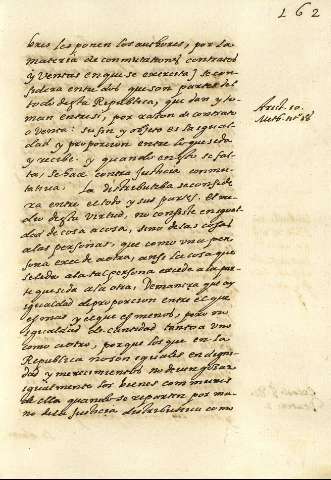 162
bres les ponen los authores, por la
materia de conmutationes contratos
y Ventas en que se exercita, y se con-
sidera entre dos que son partes del
todo desta Republica, que dan y to-
man entre si, por razon de contrato
o venta: su fin y objeto es la igual-
dad y proporcion entre lo que se da
y recibe. y quando en esto se fal-
ta, se haze contra Justicia conmu-
tativa. La distributiba se consid-
era entre el todo y sus partes. el me-
dio desta Virtud, no consiste en igual-
dad de cosa a cosa, sino de las cosas
a las personas, que como una per-
sona excede a otra, assi la cosa que
se le da a la tal persona excede a la par-
te que se da a la otra. De manera que ay
igualdad de proporcion entre el que
es mas y el que es menos, pero no
igualdad de cantidad tanto a uno
como a otro, porque los que en la
Republica no son iguales en digni-
dad y merecimientos no deven gozar
igualmente los bienes communes
de ella quando se reparten por ma-
no de la Justicia distributiva como
Arist. 10.